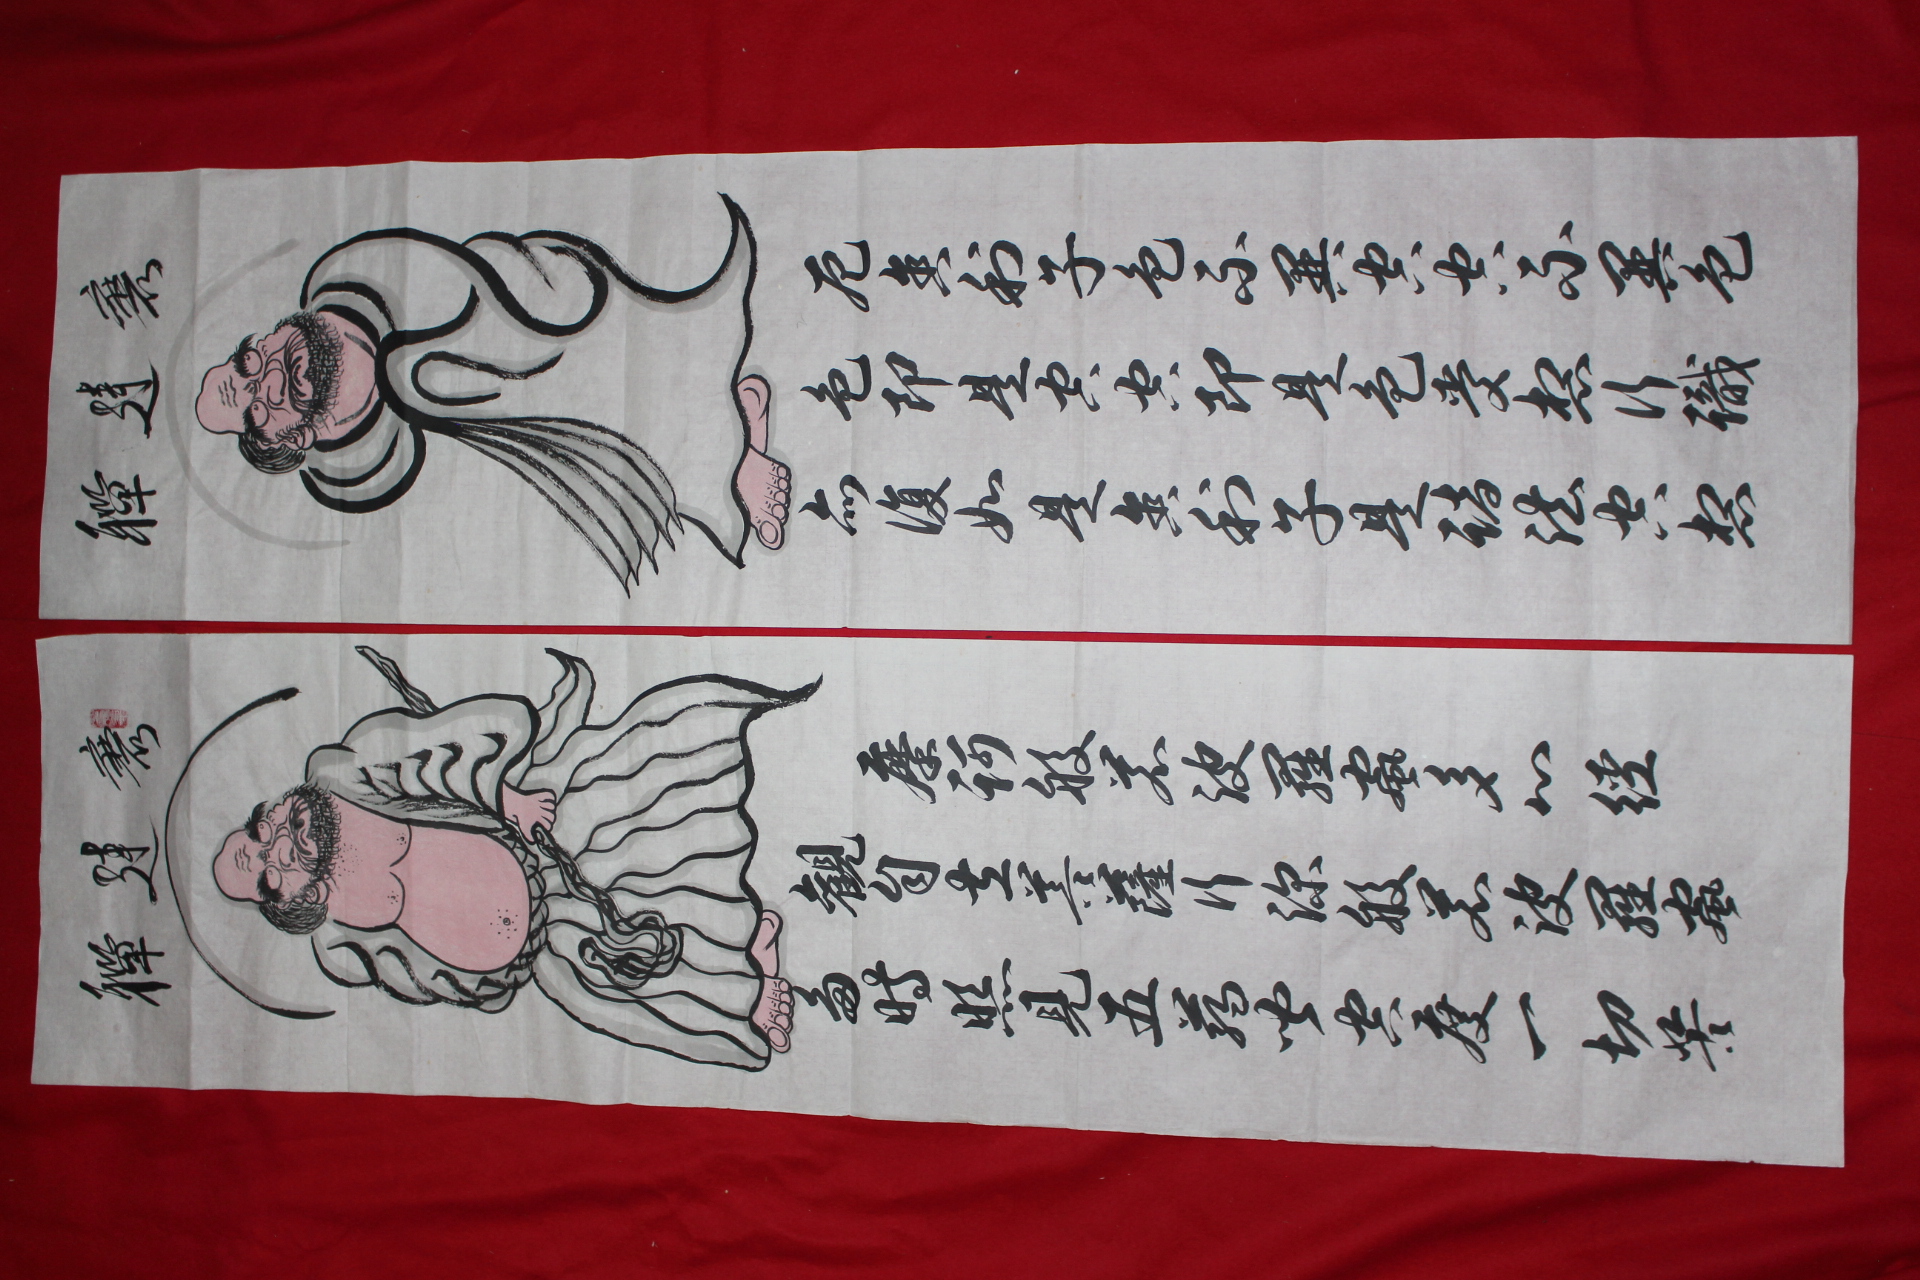 禪達磨
摩訶般若波羅蜜多心經
觀自在菩薩行深般若波羅蜜
多時照見五蘊皆空度一切苦
禪達磨
厄舍利子色不異空空不異色
色即是空空即是色受想行識
亦復如是舍利子是諸法空想